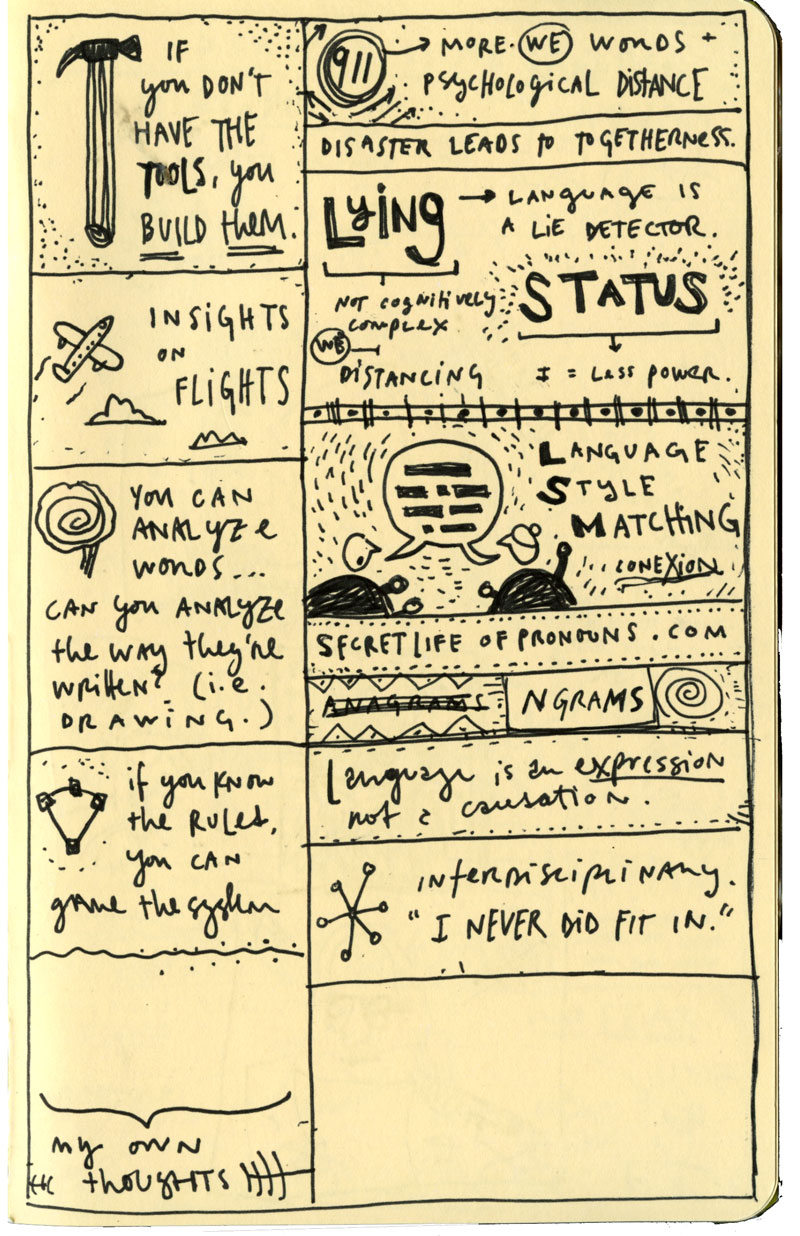 IF
you DON'T
HAVE THE
TOOLS, you
BUILD them.
INSIGHTS
ON
FLIGHTS
YOU CAN
ANALYZE
WORDS...
CAN you ANALYZE
the way they're
written? (i.e.
DRAWING.)
if you KNOW
the RULES,
you CAN
game the system
my own
thoughts
911
MORE WE WORDS +
PSYCHOLOGICAL DISTANCE
DISASTER LEADS TO TOGETHERNESS.
Lying
LANGUAGE IS
A LIE DETECTOR.
NOT cognitively
complex
WE
DISTANCING
STATUS
I = LESS POWER.
LANGUAGE
STYLE
MATCHING
CONEXION
SECRETLIFE OF PRONOUNS.COM
ANAGRAMS
NGRAMS
Language is an expression
not a causation.
INTERDISCIPLINARY.
"I NEVER DID FIT IN."